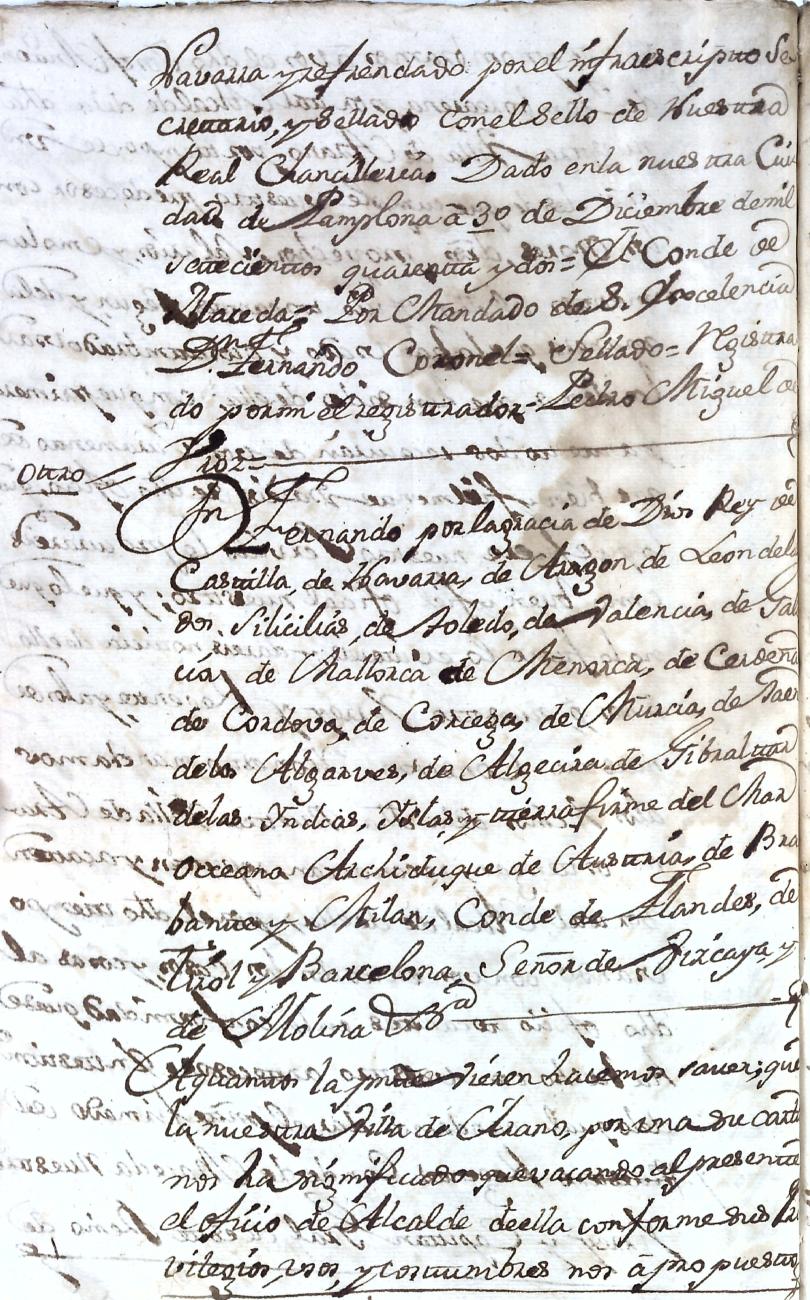 Navarra y refrendado por el infraescripto Se
cretario, y Sellado con el Sello de Nuestra
Real Chancilleria. Dado en la nuestra Ciu
dad de Pamplona â 30 de Diciembre de mil
setecientos quarenta y dos = El Conde de
Maceda = Por Mandado de S. Excelencia
Dn. Fernando Coronel = Sellado = Rgistra
do por mi el registrador = Pedro Miguel de
Otro =
Dn Fernando por la gracia de Dios Rey de
Castilla, de Navarra, de Aragon de Leon delas
dos Silicilias, de Toledo, de Valencia, de Gali
cia, de Mallorca de Menorca, de Cerdeña
de Cordova, de Corcega, de Murcia, de Jaen
de los Algarves, de Algecira de Gibraltar
delas Yndias, Yslas y tierra firme del Mar
Occeana Archiduque de Austria, de Bra
bante y Milan, Conde de Flandes, de
Tirol y Barcelona, Señor de Vizcaya, y
de Molina &a
A quantos la pnte vieren hacemos saver; que
la nuestra Villa de Arano, por una su carta
nos ha significado que vacando al presente
el oficio de Alcalde de ella conforme sus Pri
vilegios, usos, y costumbres nos â propuesto